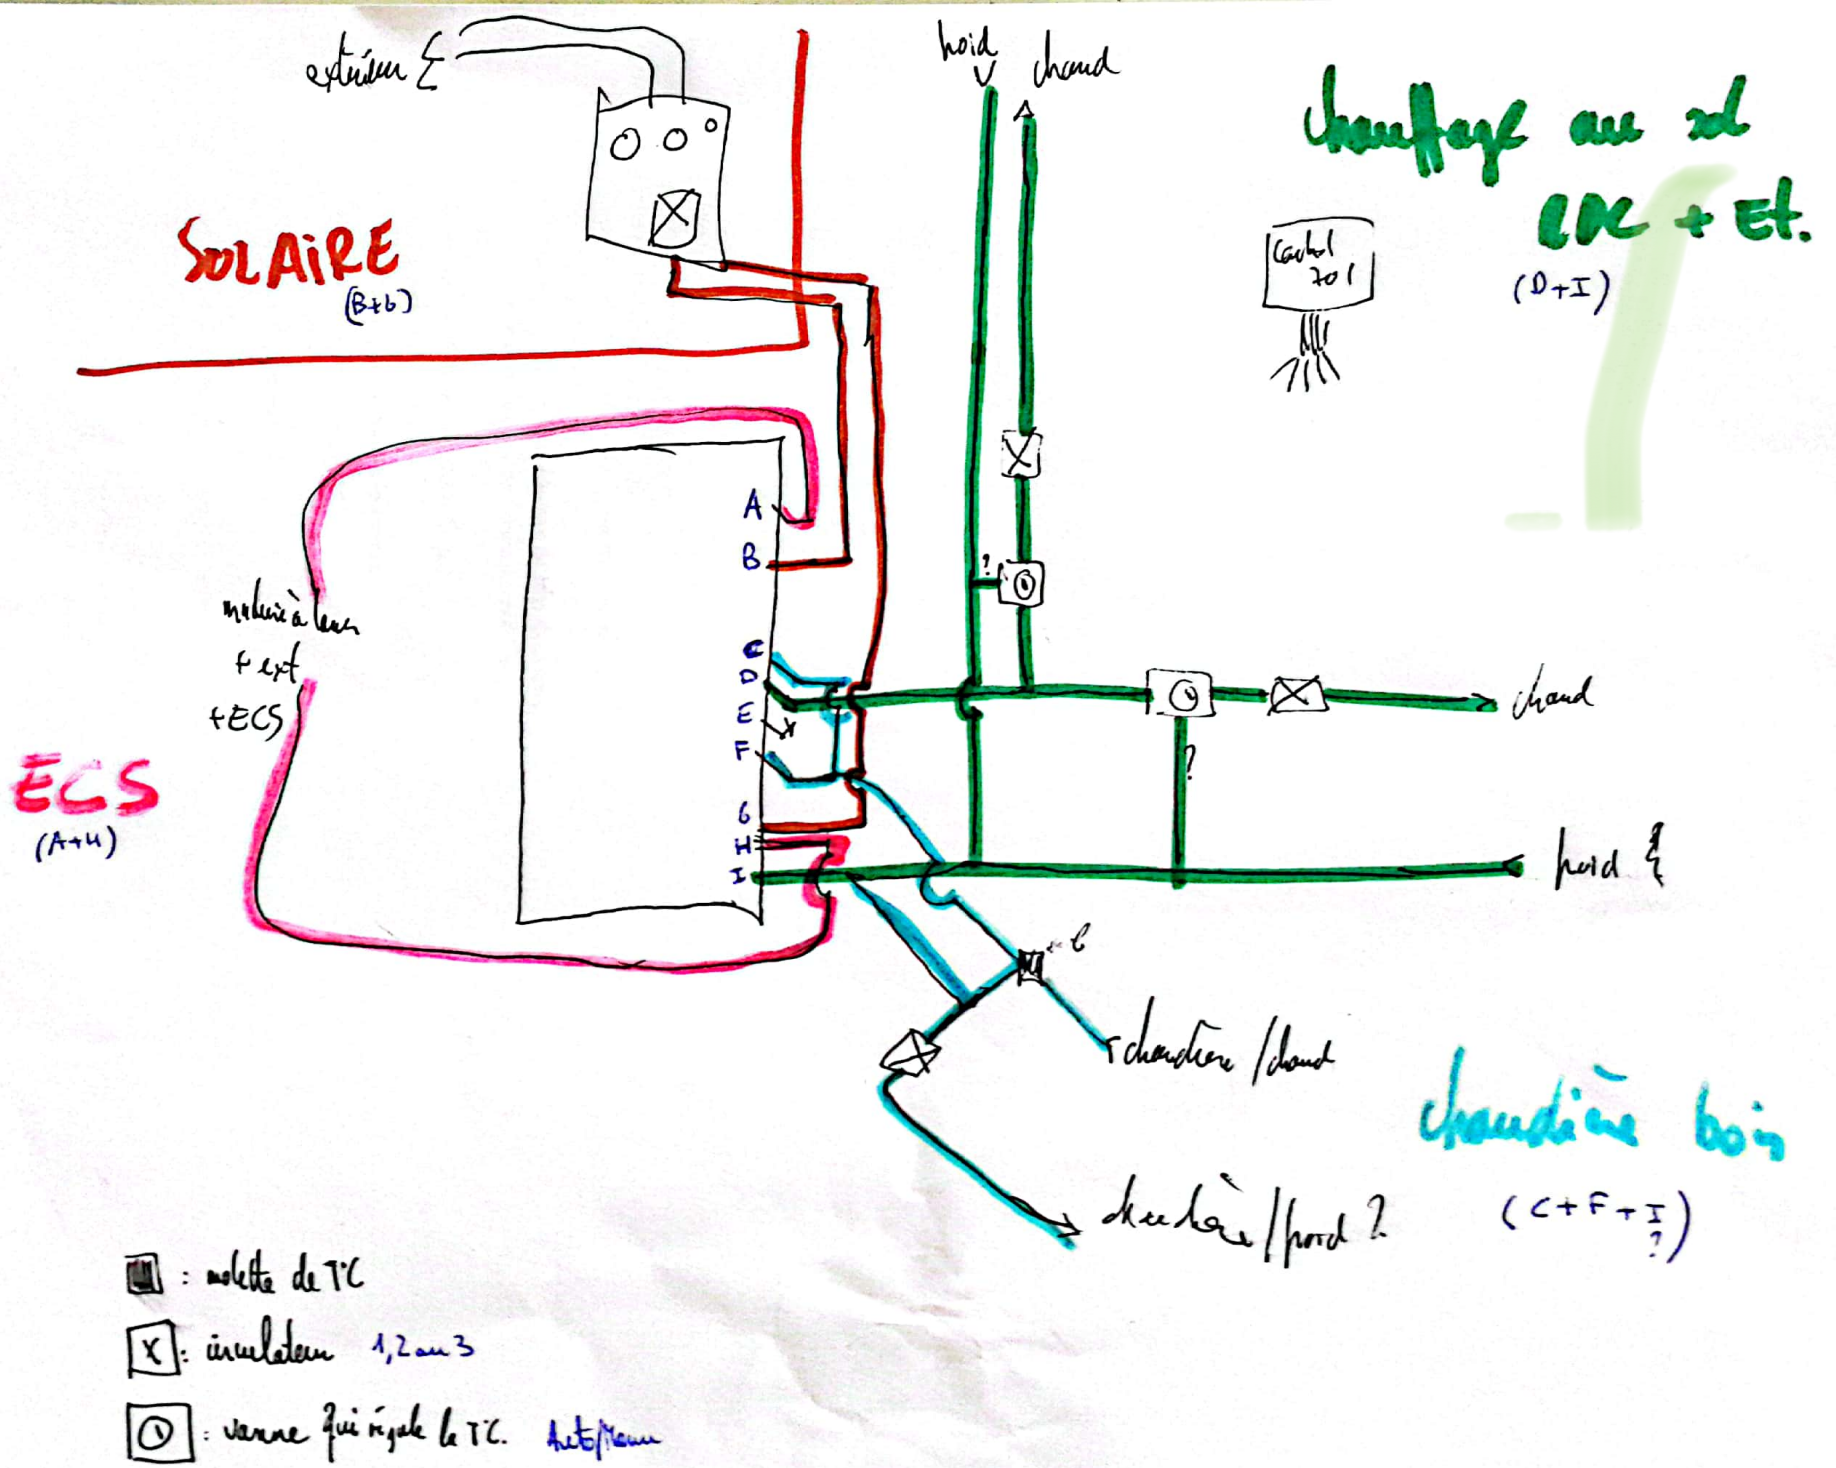 extérieur {
froid
chaud
chauffage au sol
RDC + Et.
(D+I)
Control
701
SOLAIRE
(B+6)
A
B
C
D
E
F
6
H
I
?
?
machine à laver
+ ext
+ECS
ECS
(A+H)
chaud
froid {
chaudière / chaud
chaudière / froid ?
chaudière bois
(C+F+I)
?
: molette de T°C
: circulateur 1,2 ou 3
: vanne qui régule la T°C. Auto/Manu